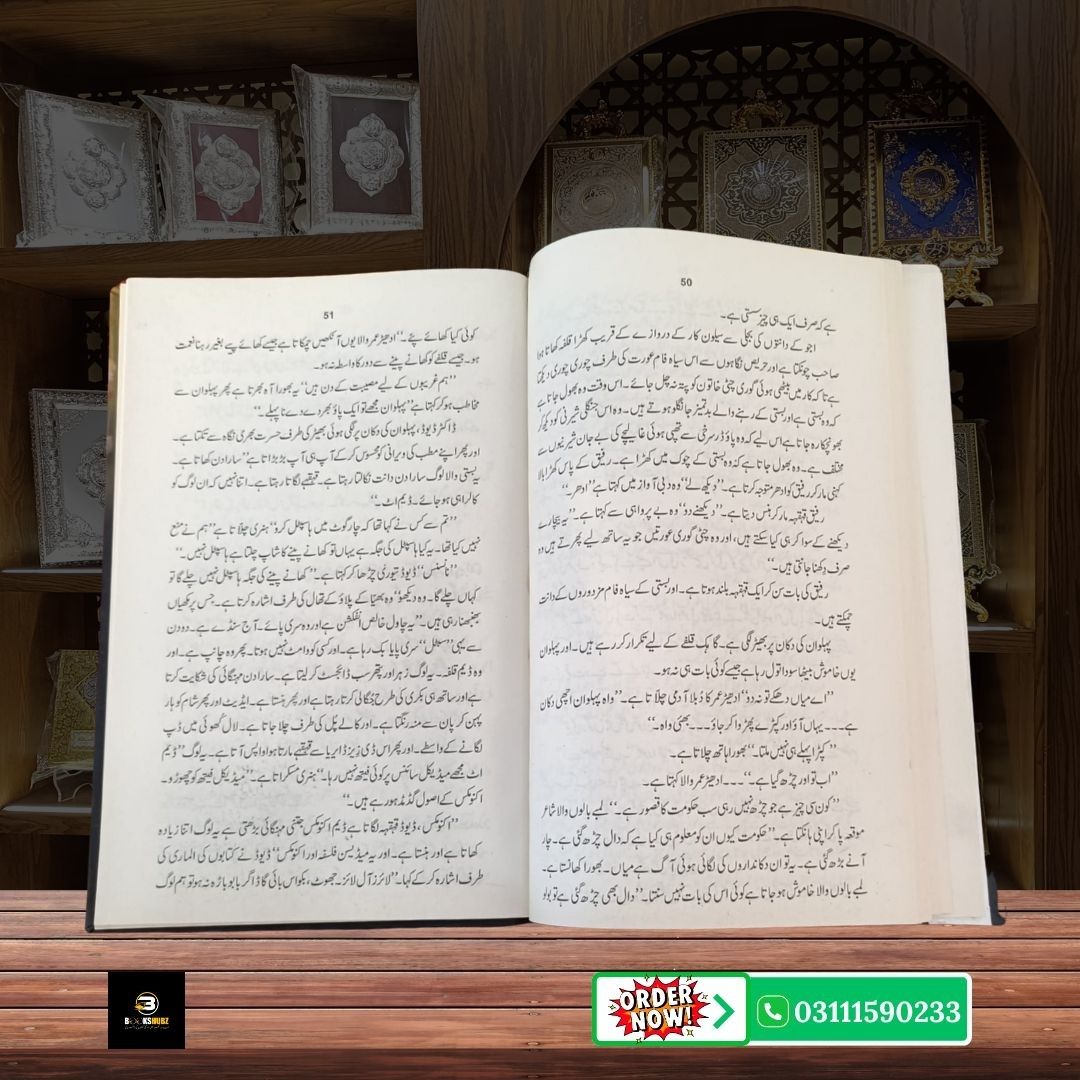 50
ہے کہ صرف ایک ہی چیز سستی ہے۔
اجو کے دانتوں کی بجلی سے سیلون کار کے دروازے کے قریب کھڑا قلفہ کھاتا ہوا
صاحب چونکتا ہے اور حریص نگاہوں سے اس سیاہ فام عورت کی طرف چوری چوری دیکھتا
ہے تاکہ کار میں بیٹھی ہوئی گوری چٹی خاتون کو پتہ نہ چل جائے۔ اس وقت وہ بھول جاتا ہے
کہ وہ بستی ہے اور بستی کے رہنے والے بدتمیز جانگلو ہوتے ہیں۔ وہ اس جنگلی شیرنی کو دیکھ کر
بھونچکا رہ جاتا ہے اس لیے کہ وہ پاؤڈر سرخی سے تھپی ہوئی غالیچے کی بے جان شیرنیوں سے
مختلف ہے۔ وہ بھول جاتا ہے کہ وہ بستی کے چوک میں کھڑا ہے۔ رفیق کے پاس کھڑا بالا
کہنی مار کر رفیق کو ادھر متوجہ کرتا ہے۔ ’’دیکھ لے‘‘ وہ دبی آواز میں کہتا ہے ’’ادھر۔‘‘
رفیق قہقہہ مار کر ہنس دیتا ہے۔ ’’دیکھنے دو‘‘ وہ بے پرواہی سے کہتا ہے۔ ’’یہ بیچارے
دیکھنے کے سوا کر ہی کیا سکتے ہیں، اور وہ چٹی گوری عورتیں جو یہ ساتھ لیے پھرتے ہیں وہ
صرف دکھنا جانتی ہیں۔‘‘
رفیق کی بات سن کر ایک قہقہہ بلند ہوتا ہے۔ اور بستی کے سیاہ فام مزدوروں کے دانت
چمکتے ہیں۔
پہلوان کی دکان پر بھیڑ لگی ہے۔ گاہک قلفے کے لیے تکرار کر رہے ہیں۔ اور پہلوان
یوں خاموش بیٹھا سودا تول رہا ہے جیسے کوئی بات ہی نہ ہو۔
’’اے میاں دھکے تو نہ دو‘‘ ادھیڑ عمر کا دُبلا آدمی چلاتا ہے۔ ’’واہ پہلوان اچھی دکان
ہے۔۔۔ یہاں آؤ اور کپڑے پھڑوا کر جاؤ۔۔۔ بھئی واہ۔‘‘
’’کپڑا پہلے ہی نہیں ملتا۔‘‘ بھورا ہاتھ چلاتا ہے۔
’’اب تو اور چڑھ گیا ہے۔‘‘۔۔۔ ادھیڑ عمر والا کہتا ہے۔
’’کون سی چیز ہے جو چڑھ نہیں رہی سب حکومت کا قصور ہے۔‘‘ لمبے بالوں والا شاعر
موقعہ پا کر اپنی ہانکتا ہے۔ ’’حکومت کیوں ان کو معلوم ہی کیا ہے کہ دال چڑھ گئی ہے۔ چار
آنے بڑھ گئی ہے۔ یہ تو ان دکانداروں کی لگائی ہوئی آگ ہے میاں۔ بھورا کھانستا ہے۔
لمبے بالوں والا خاموش ہو جاتا ہے کوئی اس کی بات نہیں سنتا۔ ’’دال بھی چڑھ گئی ہے تو بولو
51
کوئی کیا کھائے پئے۔‘‘ ادھیڑ عمر والا یوں آنکھیں جھپکاتا ہے جیسے کھائے پیے بغیر رہنا نعمت
ہو۔ جیسے قلفے کو کھانے پینے سے دور کا واسطہ نہ ہو۔
’’ہم غریبوں کے لیے مصیبت کے دن ہیں‘‘ یہ بھورا آہ بھرتا ہے پھر پہلوان سے
مخاطب ہو کر کہتا ہے ’’پہلوان مجھے تو ایک پاؤ بھر دے دے نا پہلے۔‘‘
ڈاکٹر ڈیوڈ، پہلوان کی دکان پر لگی ہوئی بھیڑ کی طرف حسرت بھری نگاہ سے تکتا ہے۔
اور پھر اپنے مطب کی ویرانی کو محسوس کر کے آپ ہی آپ بڑبڑاتا ہے ’’سارا دن کھاتا ہے۔
یہ بستی والا لوگ سارا دن دانت نکالتا رہتا ہے۔ قہقہے لگاتا رہتا ہے۔ اتنا نہیں کہ ان لوگ کو
کالرا ہی ہو جائے۔ ڈیم اٹ۔‘‘
’’تم سے کس نے کہا تھا کہ چار گوٹ میں ہاسپٹل کرو‘‘ ہنری چلاتا ہے ’’ہم نے منع
نہیں کیا تھا۔ یہ کیا ہاسپٹل کی جگہ ہے یہاں تو کھانے پینے کا شاپ چلتا ہے ہاسپٹل نہیں۔‘‘
’’نانسنس‘‘ ڈیوڈ تیوری چڑھا کر کہتا ہے۔ ’’کھانے پینے کی جگہ ہاسپٹل نہیں چلے گا تو
کہاں چلے گا۔ وہ دیکھو‘‘ وہ بھنیا کے پلاؤ کے تھال کی طرف اشارہ کرتا ہے۔ جس پر مکھیاں
بھنبھنا رہی ہیں۔ ’’یہ چاول خالص انفکشن ہے اور وہ سری پائے۔ آج سنڈے ہے۔ دو دن
سے یہی ’’سٹیل‘‘ سری پایا بک رہا ہے۔ اور کسی کو وامٹ نہیں ہوتا۔ پھر وہ چانپ ہے۔ اور
وہ ڈیم قلفہ۔ یہ لوگ زہر اور پتھر سب ڈائجسٹ کر لیتا ہے۔ سارا دن مہنگائی کی شکایت کرتا
ہے اور ساتھ ہی بکری کی طرح جُگالی کرتا رہتا ہے اور پھر ہنستا ہے۔ ایڈیٹ اور پھر شام کو ہار
پہن کر پان سے منہ رنگتا ہے۔ اور کالے پل کی طرف چلا جاتا ہے۔ لال کھوئی میں ڈپ
لگانے کے واسطے۔ اور پھر اس ڈی زیز ڈ ایریا سے قہقہے مارتا ہوا واپس آتا ہے۔ یہ لوگ ’’ڈیم
اٹ مجھے میڈیکل سائنس پر کوئی فیتھ نہیں رہا۔‘‘ ہنری مسکراتا ہے۔ ’’میڈیکل فیتھ کو چھوڑو۔
اکنومکس کے اصول گڈمڈ ہو رہے ہیں۔‘‘
’’اکنومکس، ڈیوڈ قہقہہ لگاتا ہے ڈیم اکنومکس جتنی مہنگائی بڑھتی ہے یہ لوگ اتنا زیادہ
کھاتا ہے اور ہنستا ہے۔ اور یہ میڈیسن فلسفہ اور اکنومکس‘‘ ڈیوڈ نے کتابوں کی الماری کی
طرف اشارہ کر کے کہا۔ ’’لائرز آل لائرز۔ جھوٹ، بکواس بائی گاڈ اگر بابو باڑہ نہ ہو تو ہم لوگ
BOOKSHUBZ
ORDER
NOW!
03111590233